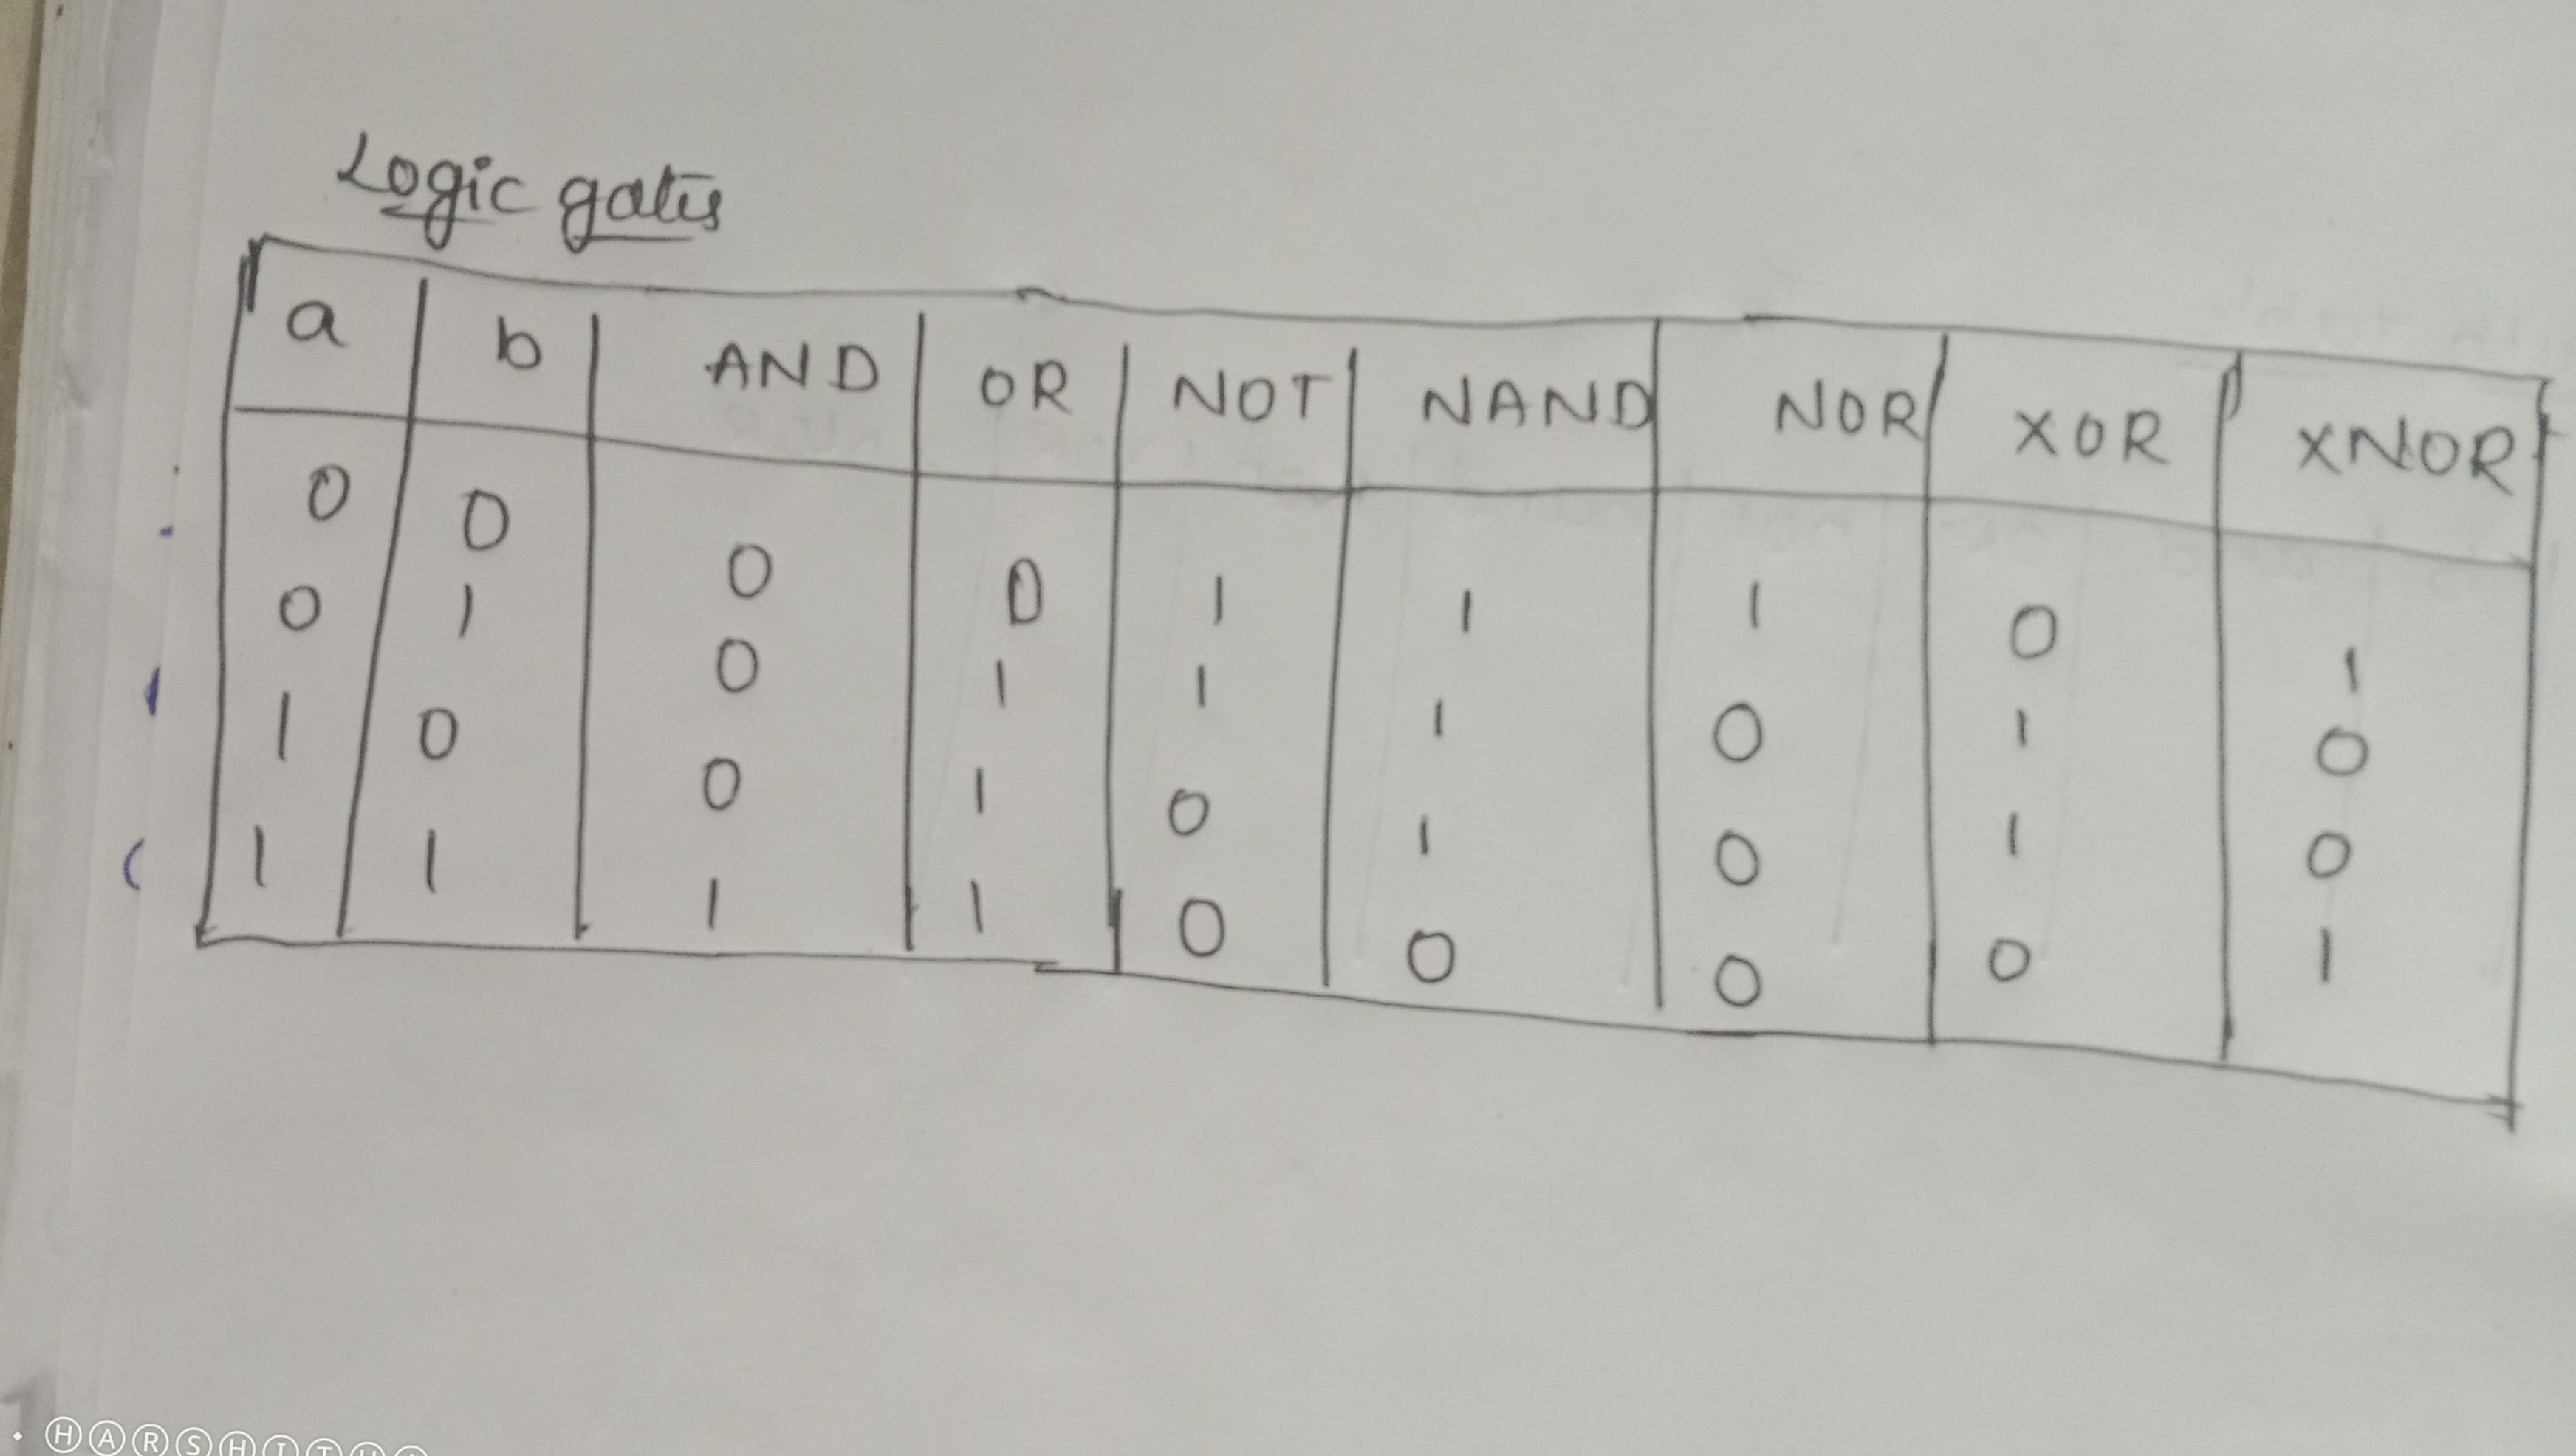 Logic gates
a b AND OR NOT NAND NOR XOR XNOR
0 0 0 0 1 1 1 0 1
0 1 0 1 1 1 0 1 0
1 0 0 1 0 1 0 1 0
1 1 1 1 0 0 0 0 1